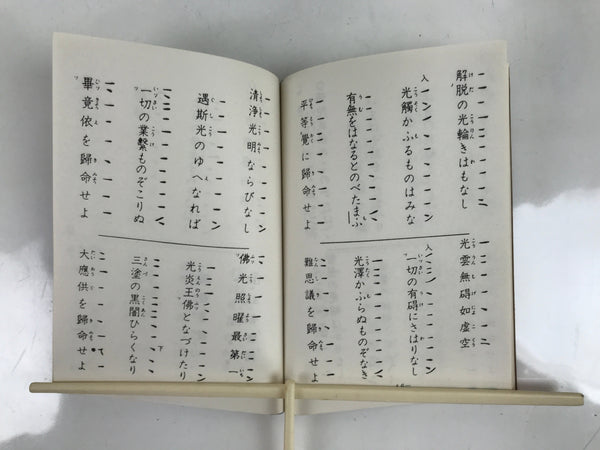 解脱の光輪きはもなし
光觸かふるものはみな
有無をはなるとのべたまふ
平等覺に歸命せよ
光雲無碍如虚空
一切の有碍にさはりなし
光澤かふらぬものぞなき
難思議を歸命せよ
清浄光明ならびなし
遇斯光のゆへなれば
一切の業繫ものぞこりぬ
畢竟依を歸命せよ
佛光照曜最第一
光炎王佛となづけたり
三塗の黒闇ひらくなり
大應供を歸命せよ